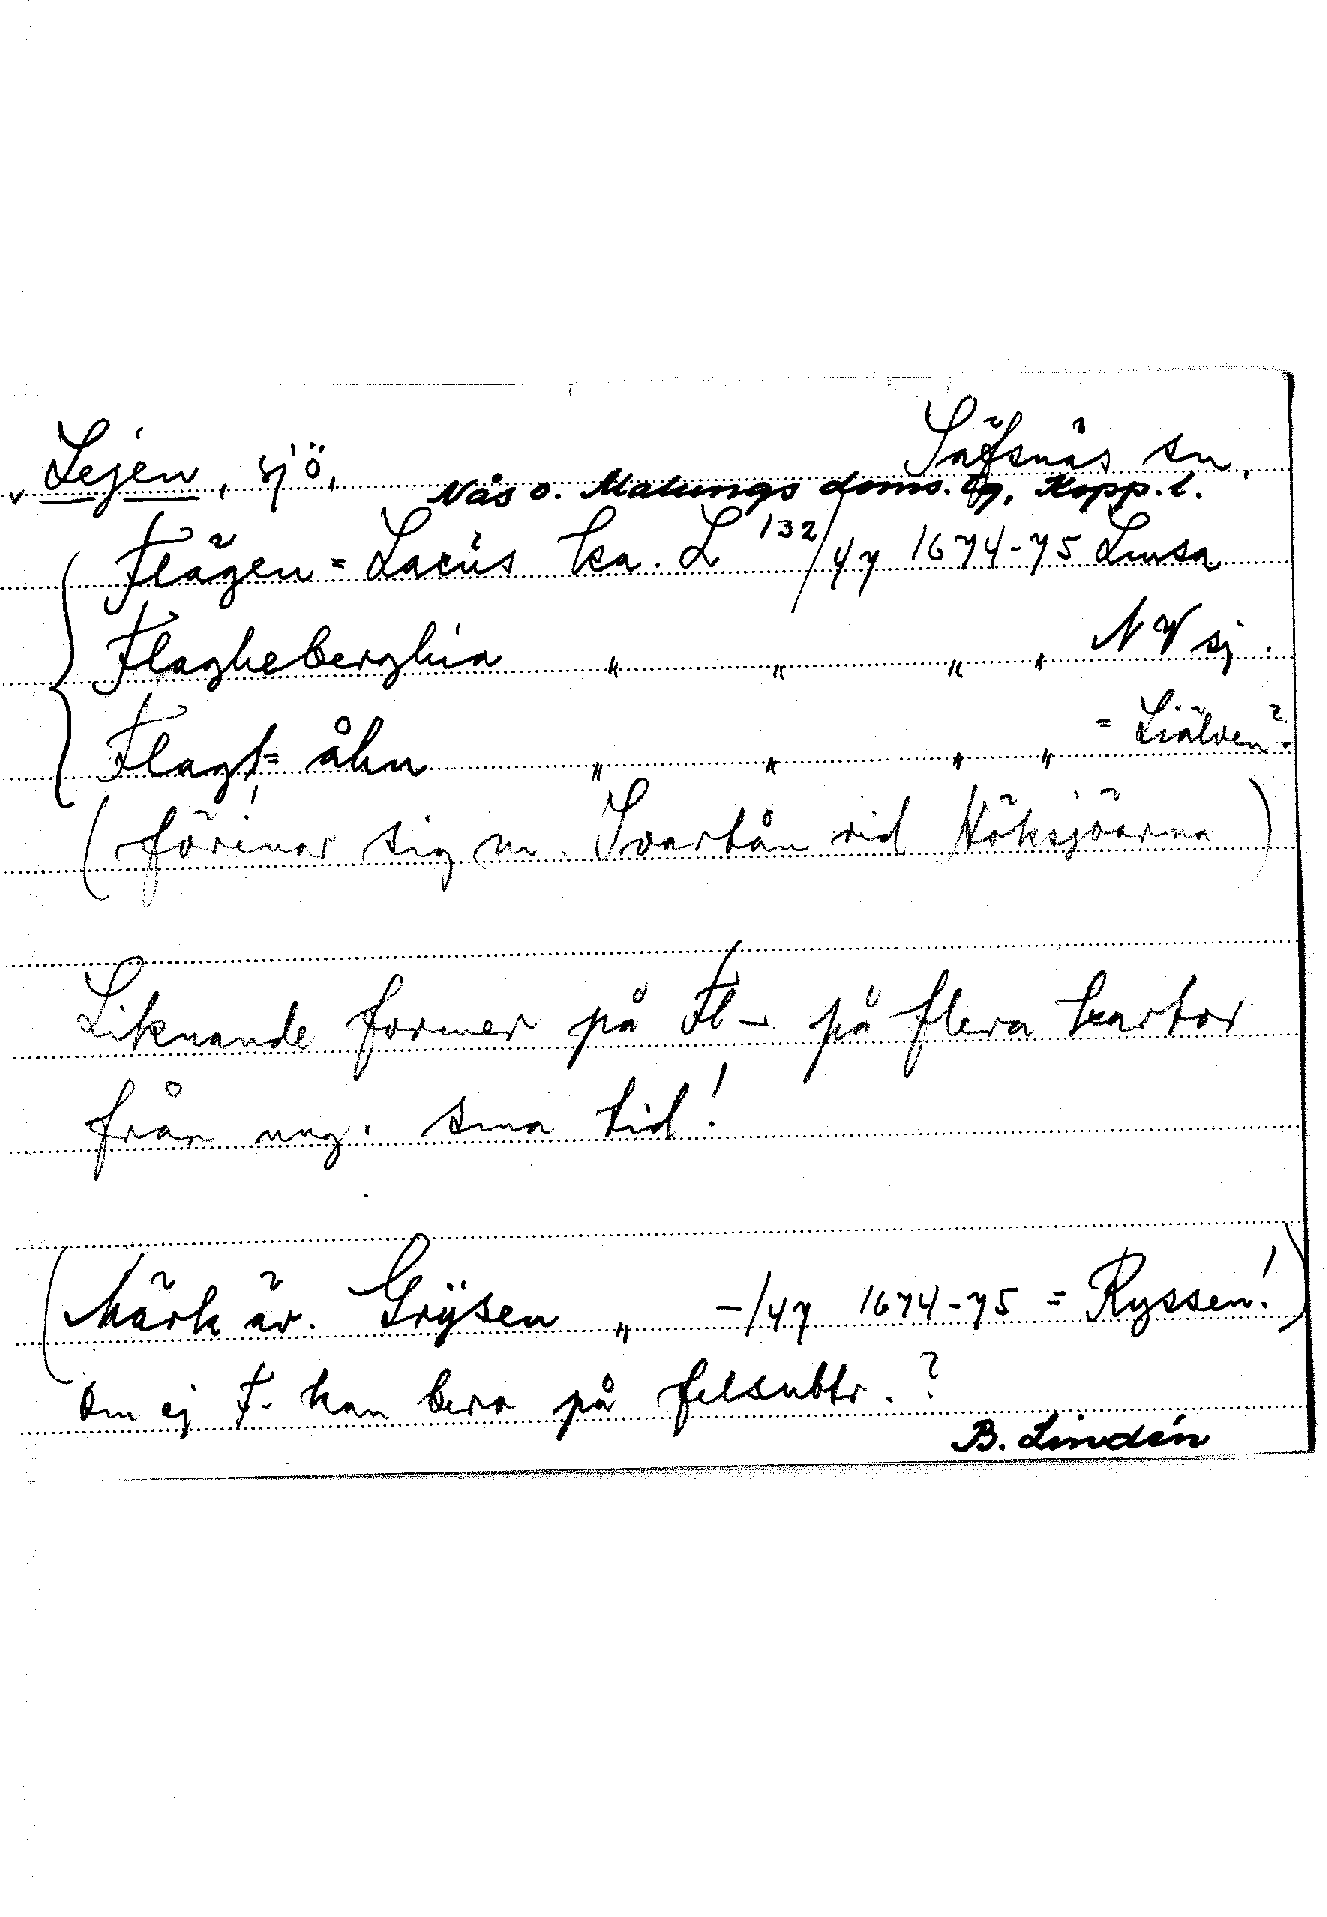 Lejen, sjö, Säfsnäs sn.
Nås o. Malungs doms. tg, Kopp. l.
Flägen = Lacus ka. L 132/47 1674-75 Lmsa
Flagheberghia " " " " NV sj.
Flagf= åhn " " " " = Liälven?
(förenar sig m. Svartån vid Höksjöarna)
Liknande former på Fl- på flera kartor
från ung. sma tid!
(Märk äv. Grÿsen " -/47 1674-75 = Ryssen!)
Om ej F- kan bero på felsubtr.?
B. Lindén